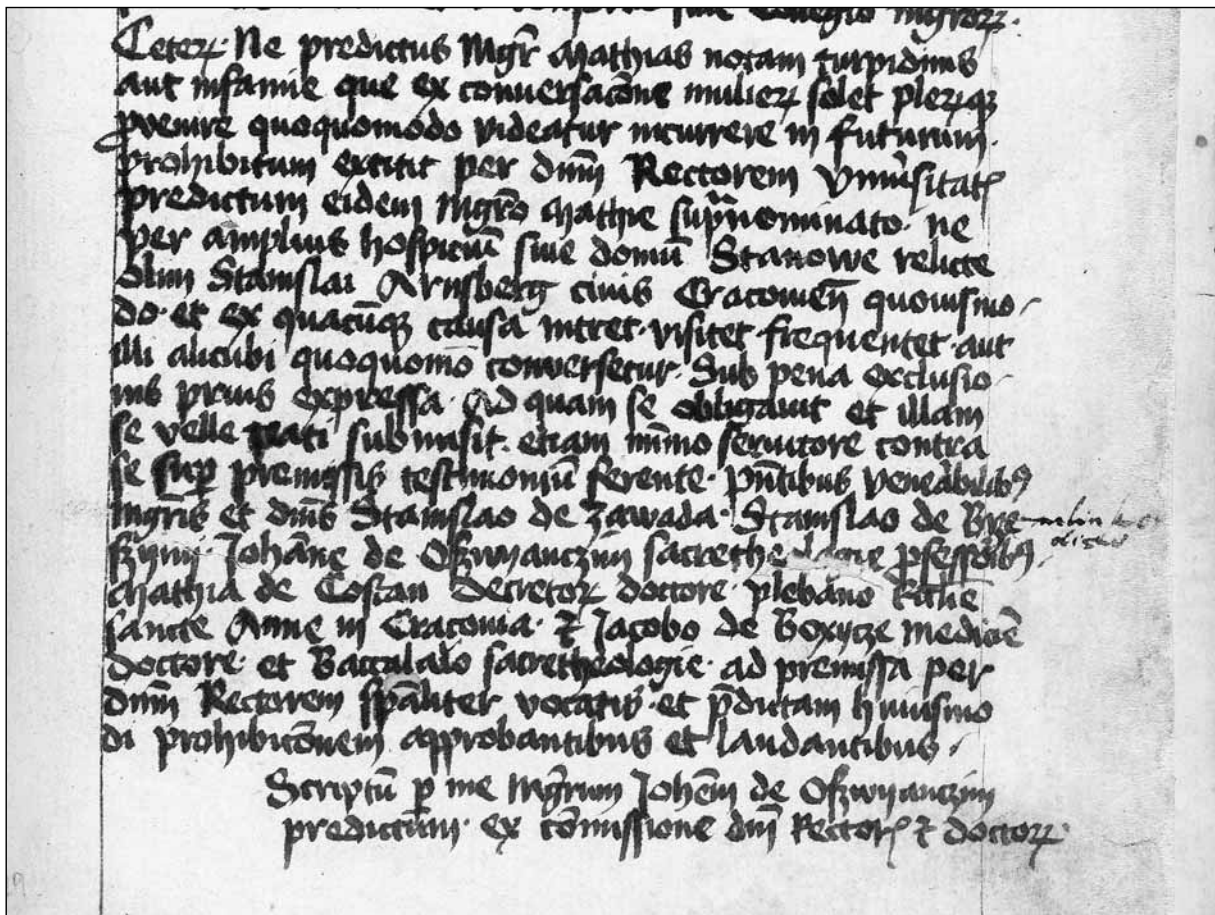 sive Collegio mgrorꝝ.
Ceterꝝ. Ne predictus Mgr̄ Mathias notam turpidinis
aut infamie que ex conversac̄one mulierꝝ solet plerꝝqꝫ
ꝓvenire quoquomodo videatur incurrere in futurum.
prohibitum extitit per dnm̄ Rectorem Vniv̓sitatꝭ
predictum eidem Mgrō Mathie sup̄nominato. ne
per amplius hospiciū sive domū Stanowe relicte
olim Stanislai Arnsberg civis Cracovien̄ quovismo-
do. et ex quacūqꝫ causa intret. visitet. frequentet. aut
illi alicubi quoquomō conversetur. Sub pena exclusio-
nis prius expressa. Ad quam se obligavit et illam
se velle pati submisit. etiam minimo servitore contra
se suꝑ premissis testimoniū ferente. Pn̄tibus venerābilibꝰ
mgrīs et dnīs Stanislao de Zawada. Stanislao de Brze-
szyni. Johāne de Oszwyanczim sacretheologie ꝓfessōribꝰ
Mathia de Coszan decretorꝝ doctore. plebano Ecclīe
sancte Anne in Cracovia. ⁊ Jacobo de Boxycze medicīe
doctore. et Baccalalo sacretheologie. ad premissa per
dnm̄ Rectorem spāliter vocatis. et p̄dictam huiusmo
di prohibic̄onem approbantibus et laudantibus.
Scriptū ꝑ me Mgrūm Johēm de Oszwyanczim
predictum. ex cōmissione dnī Rectorꝭ ⁊ doctorꝝ